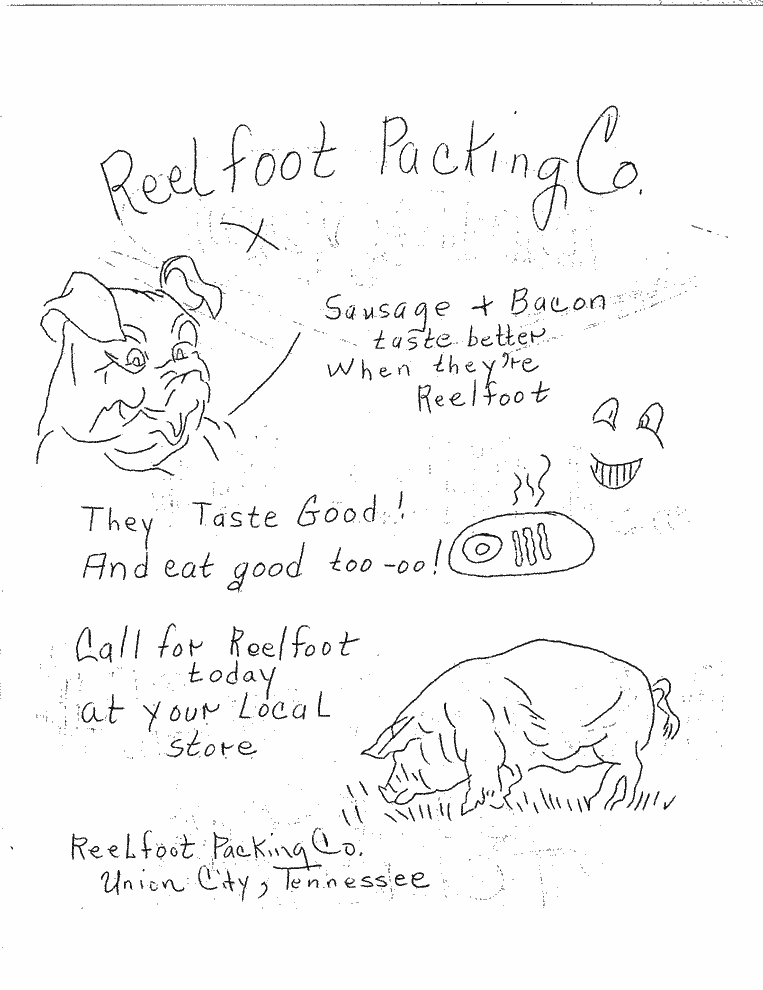 Reelfoot Packing Co.
Sausage + Bacon
taste better
When they're
Reelfoot
They Taste Good!
And eat good too-oo!
Call for Reelfoot
today
at your Local
store
Reelfoot Packing Co.
Union City, Tennessee